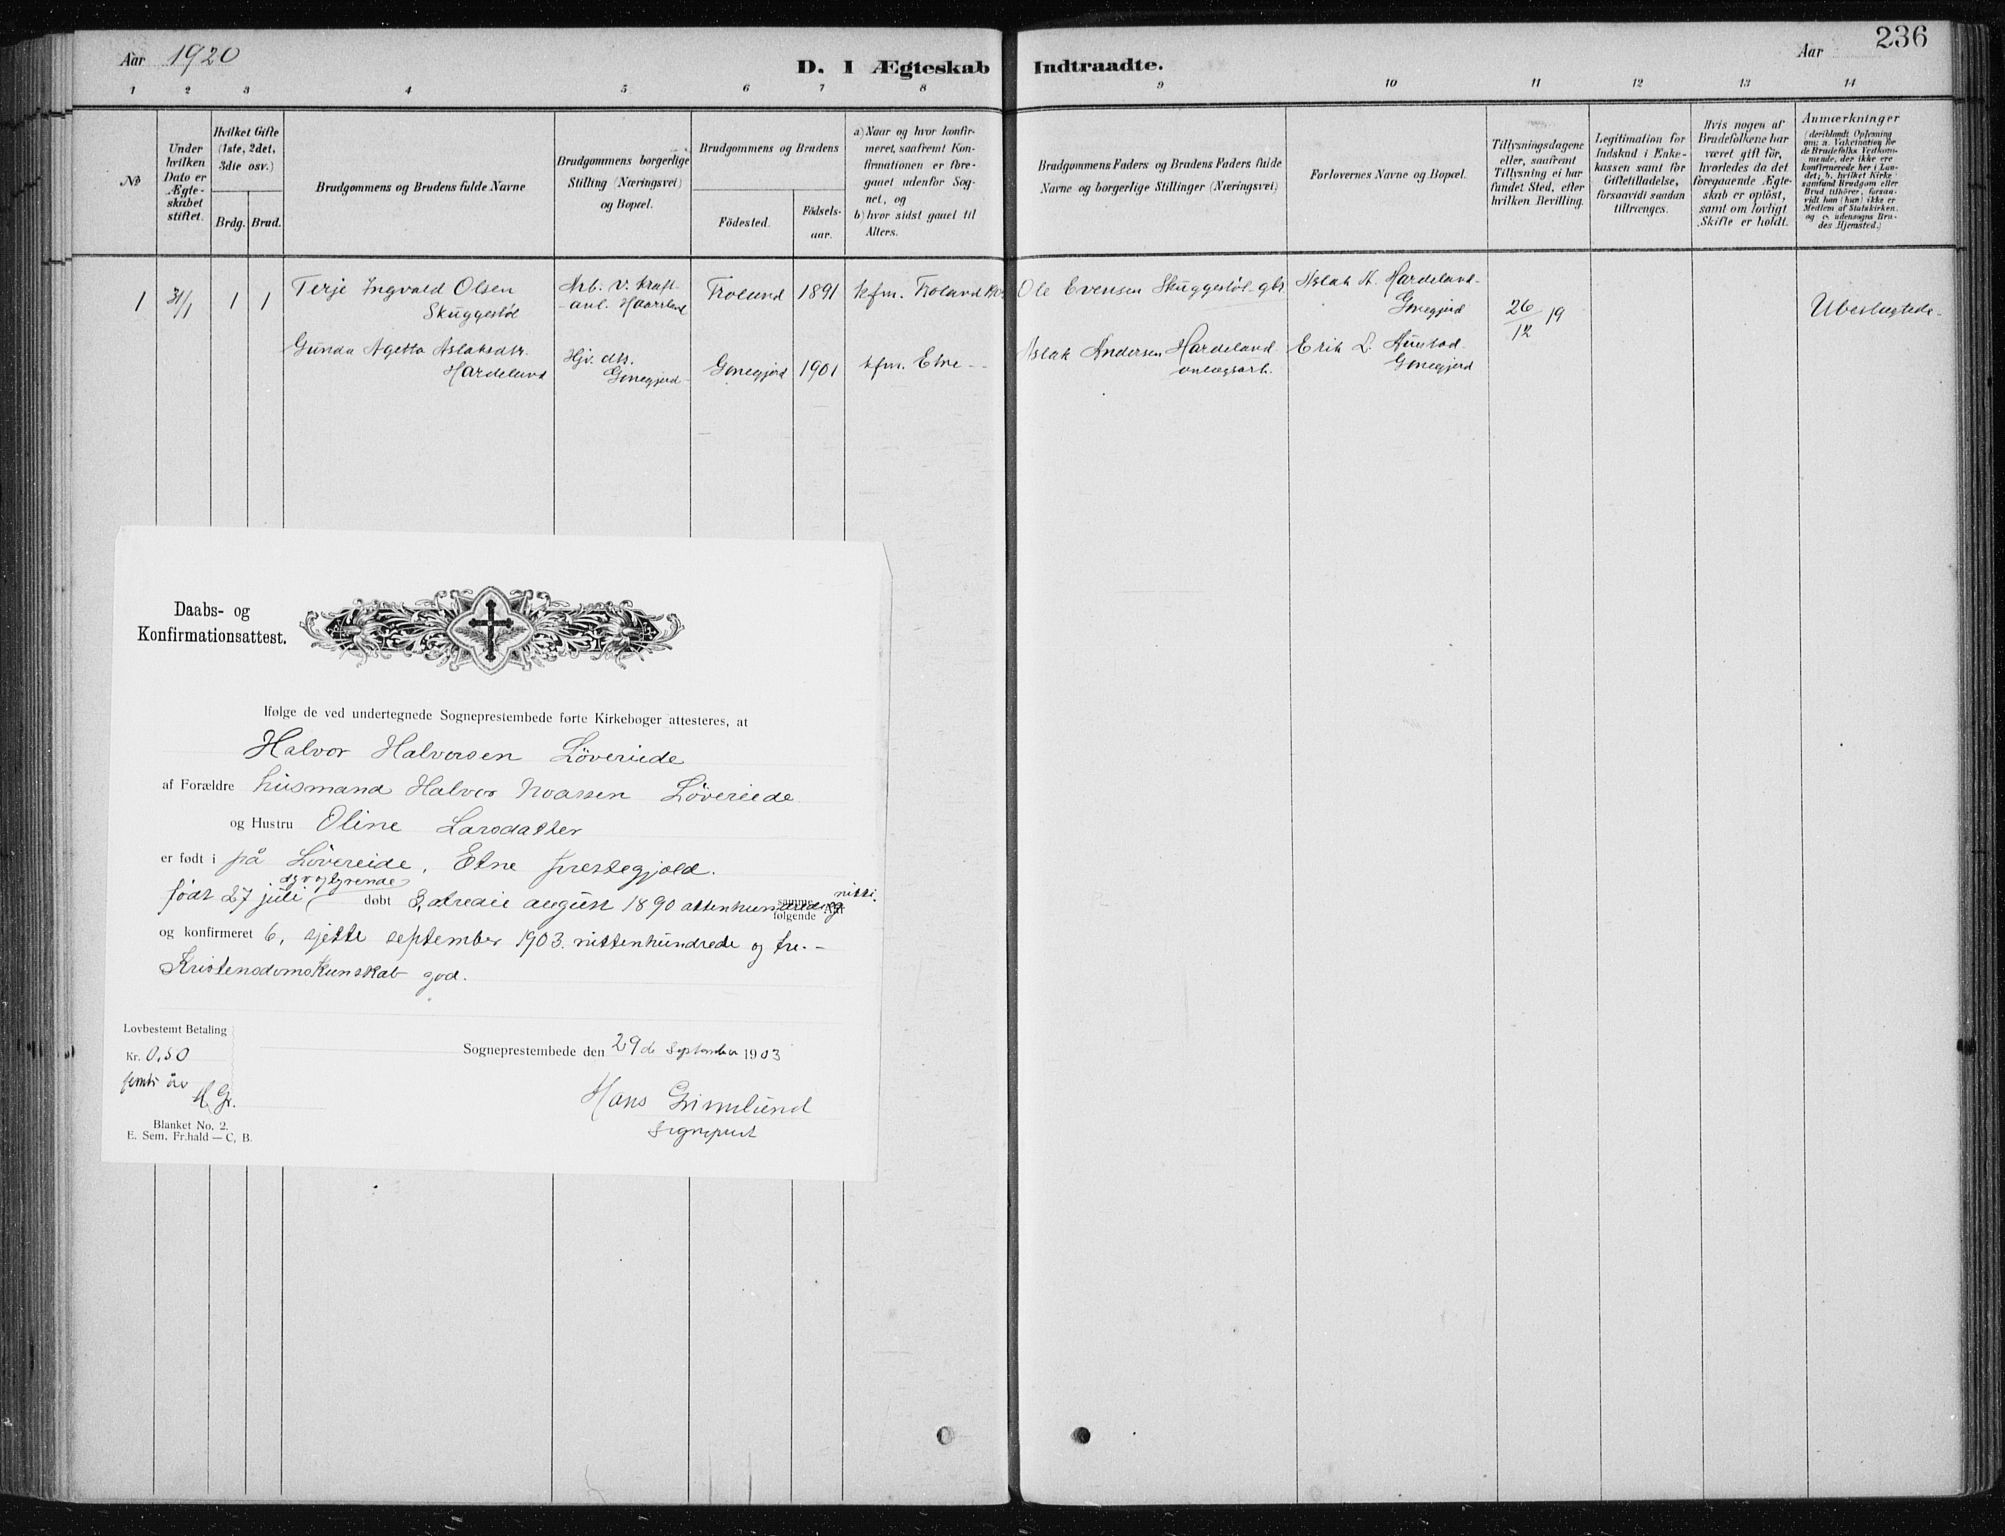 Aar 1920
D. I Ægteskab Indtraadte.
Aar
236
1 2 3 4 5 6 7 8 9 10 11 12 13 14
No
Under hvilken Dato er Ægteskabet stiftet.
Hvilket Gifte (1ste, 2det, 3die osv.)
Brdg. Brud.
Brudgommens og Brudens fulde Navne
Brudgommens borgerlige Stilling (Næringsvei) og Bopæl.
Brudgommens og Brudens
Födested.
Födsels-aar.
a) Naar og hvor konfirmeret, saafremt Konfirmationen er foregaaet udenfor Sognet, og
b) hvor sidst gaaet til Alters.
Brudgommens Faders og Brudens Faders fulde Navne og borgerlige Stillinger (Næringsvei)
Forlovernes Navne og Bopæl.
Tillysningsdagene eller, saafremt Tillysning ei har fundet Sted, efter hvilken Bevilling.
Legitimation for Indskud i Enkekassen samt for Giftetilladelse, forsaavidt saadan tiltrænges.
Hvis nogen af Brudefolkene har været gift för, hvorledes da det foregaaende Ægteskab er oplöst, samt om lovligt Skifte er holdt.
Anmærkninger
(deriblandt Oplysning om: a. Vakcination for de Brudefolks Vedkommende, der ikke ere konfirmerede her i Landet, b. hvilket Kirkesamfund Brudgom eller Brud tilhörer, forsaavidt han (hun) ikke er Medlem af Statskirken, og c. udensogns Brudes Hjemsted.)
1 31/1 1 1 Terje Ingvald Olsen Skuggestöl
Arb. v. kraftanl. Haarsland
Froland 1891 kfm. Froland
Ole Evensen Skuggestöl gbr.
Aslak A. Hardeland Gonegjerd
26/12 19
Ubeslegtede
Gunda Agetta Aslaksdtr. Hardeland
Hjv. dtr. Gonegjerd
Gonegjerd 1901 kfm. Etne
Aslak Andersen Hardeland anlægsarb.
Erik L. Austad Gonegjerd
Daabs- og
Konfirmationsattest.
Ifølge de ved undertegnede Sogneprestembede førte Kirkebøger attesteres, at
Halvor Halvorsen Løvereide
af Forældre husmand Halvor Noassen Løvereide
og Hustru Oline Larsdatter
er født i på Løvereide, Etne prestegjæld.
syvogtyvende
født 27 juli døbt 3, tredie august 1890 attenhundredeog nitti.
samme
følgende Aar
og konfirmeret 6, sjette september 1903. nittenhundrede og tre.-
Kristendomskunskab god.
Lovbestemt Betaling
Kr. 0,50
femti öre
H Gr.
Sogneprestembede den 29de September 1903
Hans Grimelund
Sogneprest
Blanket No. 2.
E. Sem, Fr.hald — C, B.